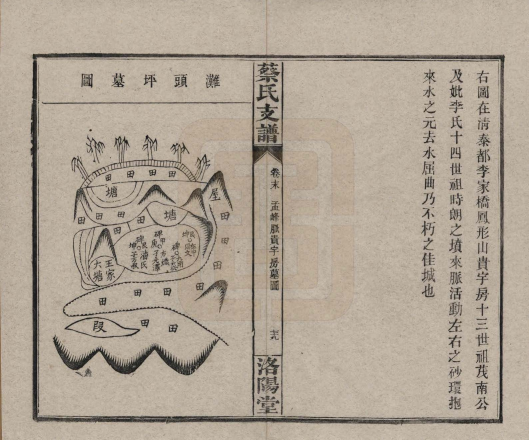 右圖在清泰都李家橋鳳形山貴字房十三世祖茂南公
及妣李氏十四世祖時朗之墳來脈活動左右之砂環抱
來水之元去水屈曲乃不朽之佳城也
蔡氏支譜
卷末
孟峰脈貴字房墓圖
洛陽堂
灘頭坪墓圖
塘
田
田
田
田
屋
田
塘
田
田
王家
大塘
田
田
田
田
田
田
段
田